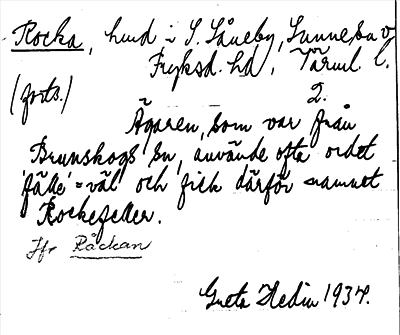 Rocka, hund i S. Såneby, Sunnesa v
Fryksd. hd, Värml. l.
(forts.) 2.
Ägaren, som var från
Brunskogs sn, använde ofta ordet
'fälle' = väl och fick därför namnet
Rockefeller.
Jfr Råckan
Greta Hedin 1934.